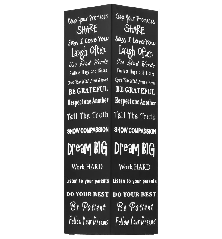 Keep Your Promises
SHARE
Say I Love You
Laugh Often
Use Kind Words
BE GRATEFUL
Respect one Another
Tell The Truth
SHOW COMPASSION
Dream BIG
Work HARD
Listen to your parents
DO YOUR BEST
Be Patient
Follow Your Dreams
Keep Your Promises
SHARE
Say I Love You
Laugh Often
Use Kind Words
BE GRATEFUL
Respect one Another
Tell The Truth
SHOW COMPASSION
Dream BIG
Work HARD
Listen to your parents
DO YOUR BEST
Be Patient
Follow Your Dreams